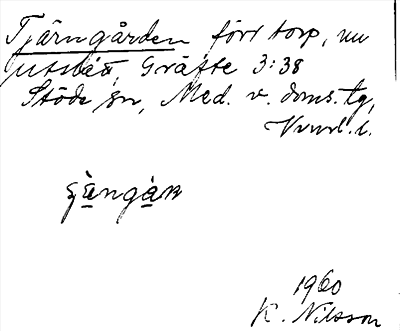 Tjärngården förr torp, nu
utslått, Gräfte 3:38
Stöde sn, Med. v. doms. tg,
Vnrl. l.
1960
K. Nilsson